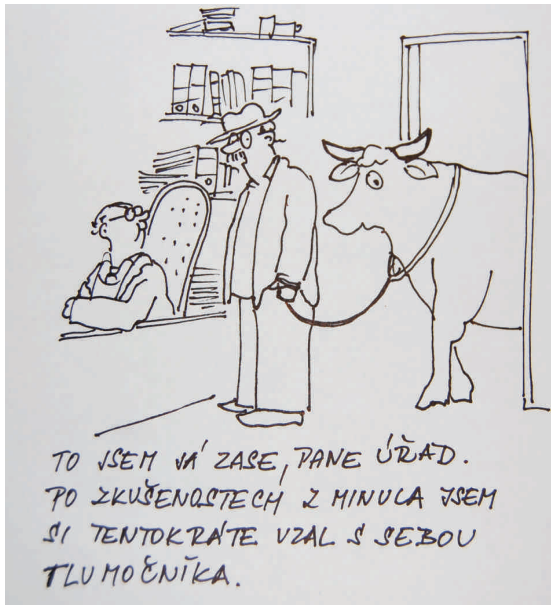 TO JSEM JÁ ZASE, PANE ÚŘAD.
PO ZKUŠENOSTECH Z MINULA JSEM
SI TENTOKRÁTE VZAL S SEBOU
TLUMOČNÍKA.